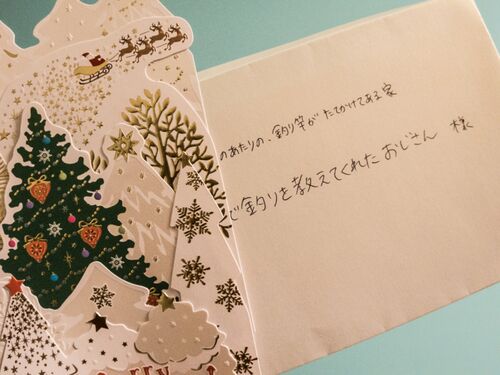 のあたりの、釣り竿が たてかけてある家
で釣りを教えてくれた おじさん 様